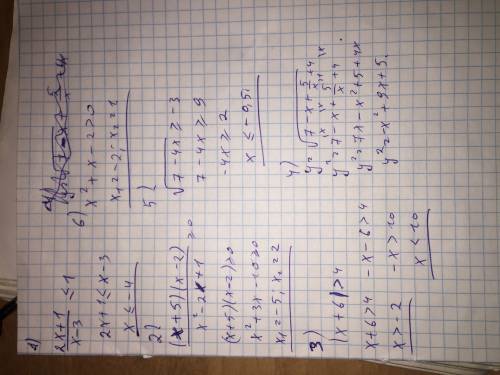 1)
2x+1 / x-3 ≤ 1
2x+1 ≤ x-3
x ≤ -4
2)
(x+5)(x-2) / x²-2x+1 ≥ 0
(x+5)(x-2) ≥ 0
x²+3x-10 ≥ 0
x₁ = -5, x₂ = 2
3)
|x+6| > 4
x+6 > 4 -x-6 > 4
x > -2 -x > 10
x < 10
6)
x²+x-2 > 0
x₁ = -2, x₂ = 1
5)
√7-4x ≥ -3
7-4x ≥ 9
-4x ≥ 2
x ≤ -0,5
4)
y = √7-x+5/x+4
y² = 7-x+5/x+4
y² = 7x-x²+5+4x
y² = -x²+9x+5.